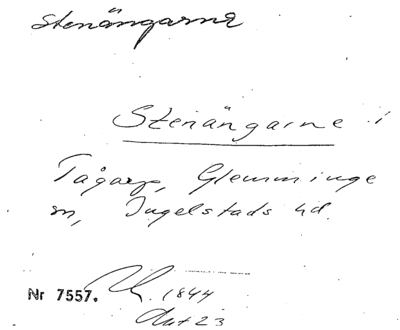 Stenängarne
Stenängarne i
Tågarp, Glemminge
sn, Ingelstads hd.
Nr 7557. 1844
Akt 23